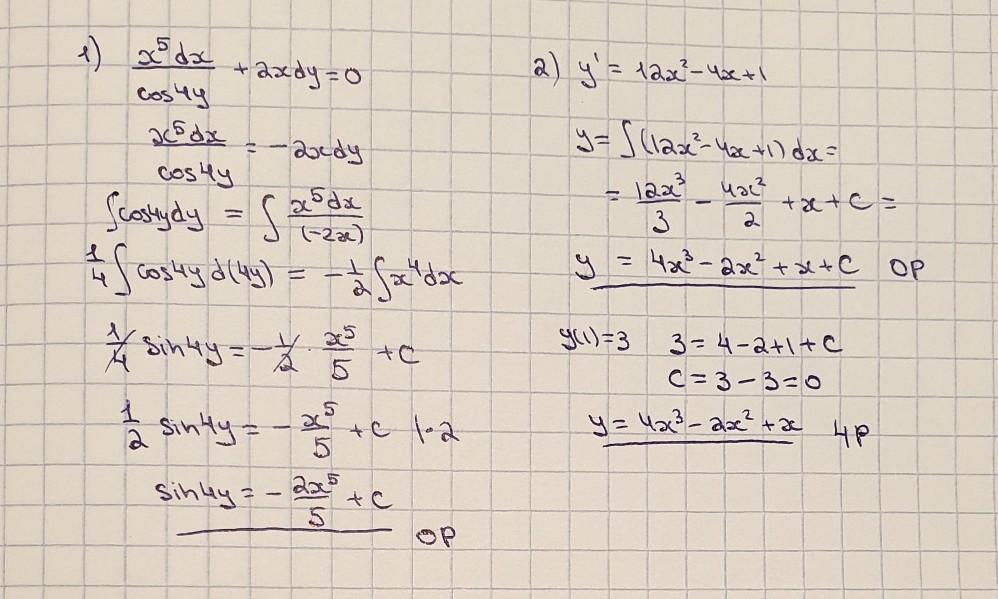 1) x⁵dx/cos4y + 2xdy = 0
x⁵dx/cos4y = -2xdy
∫cos4ydy = ∫ x⁵dx/(-2x)
1/4 ∫ cos4y d(4y) = -1/2 ∫x⁴dx
1/4 sin4y = -1/2 · x⁵/5 + C
1/2 sin4y = - x⁵/5 + C |·2
sin4y = - 2x⁵/5 + C
OP
2) y' = 12x²-4x+1
y = ∫(12x²-4x+1)dx =
= 12x³/3 - 4x²/2 + x + C =
y = 4x³-2x²+x+C OP
y(1)=3 3 = 4-2+1+C
C = 3-3=0
y = 4x³-2x²+x 4P